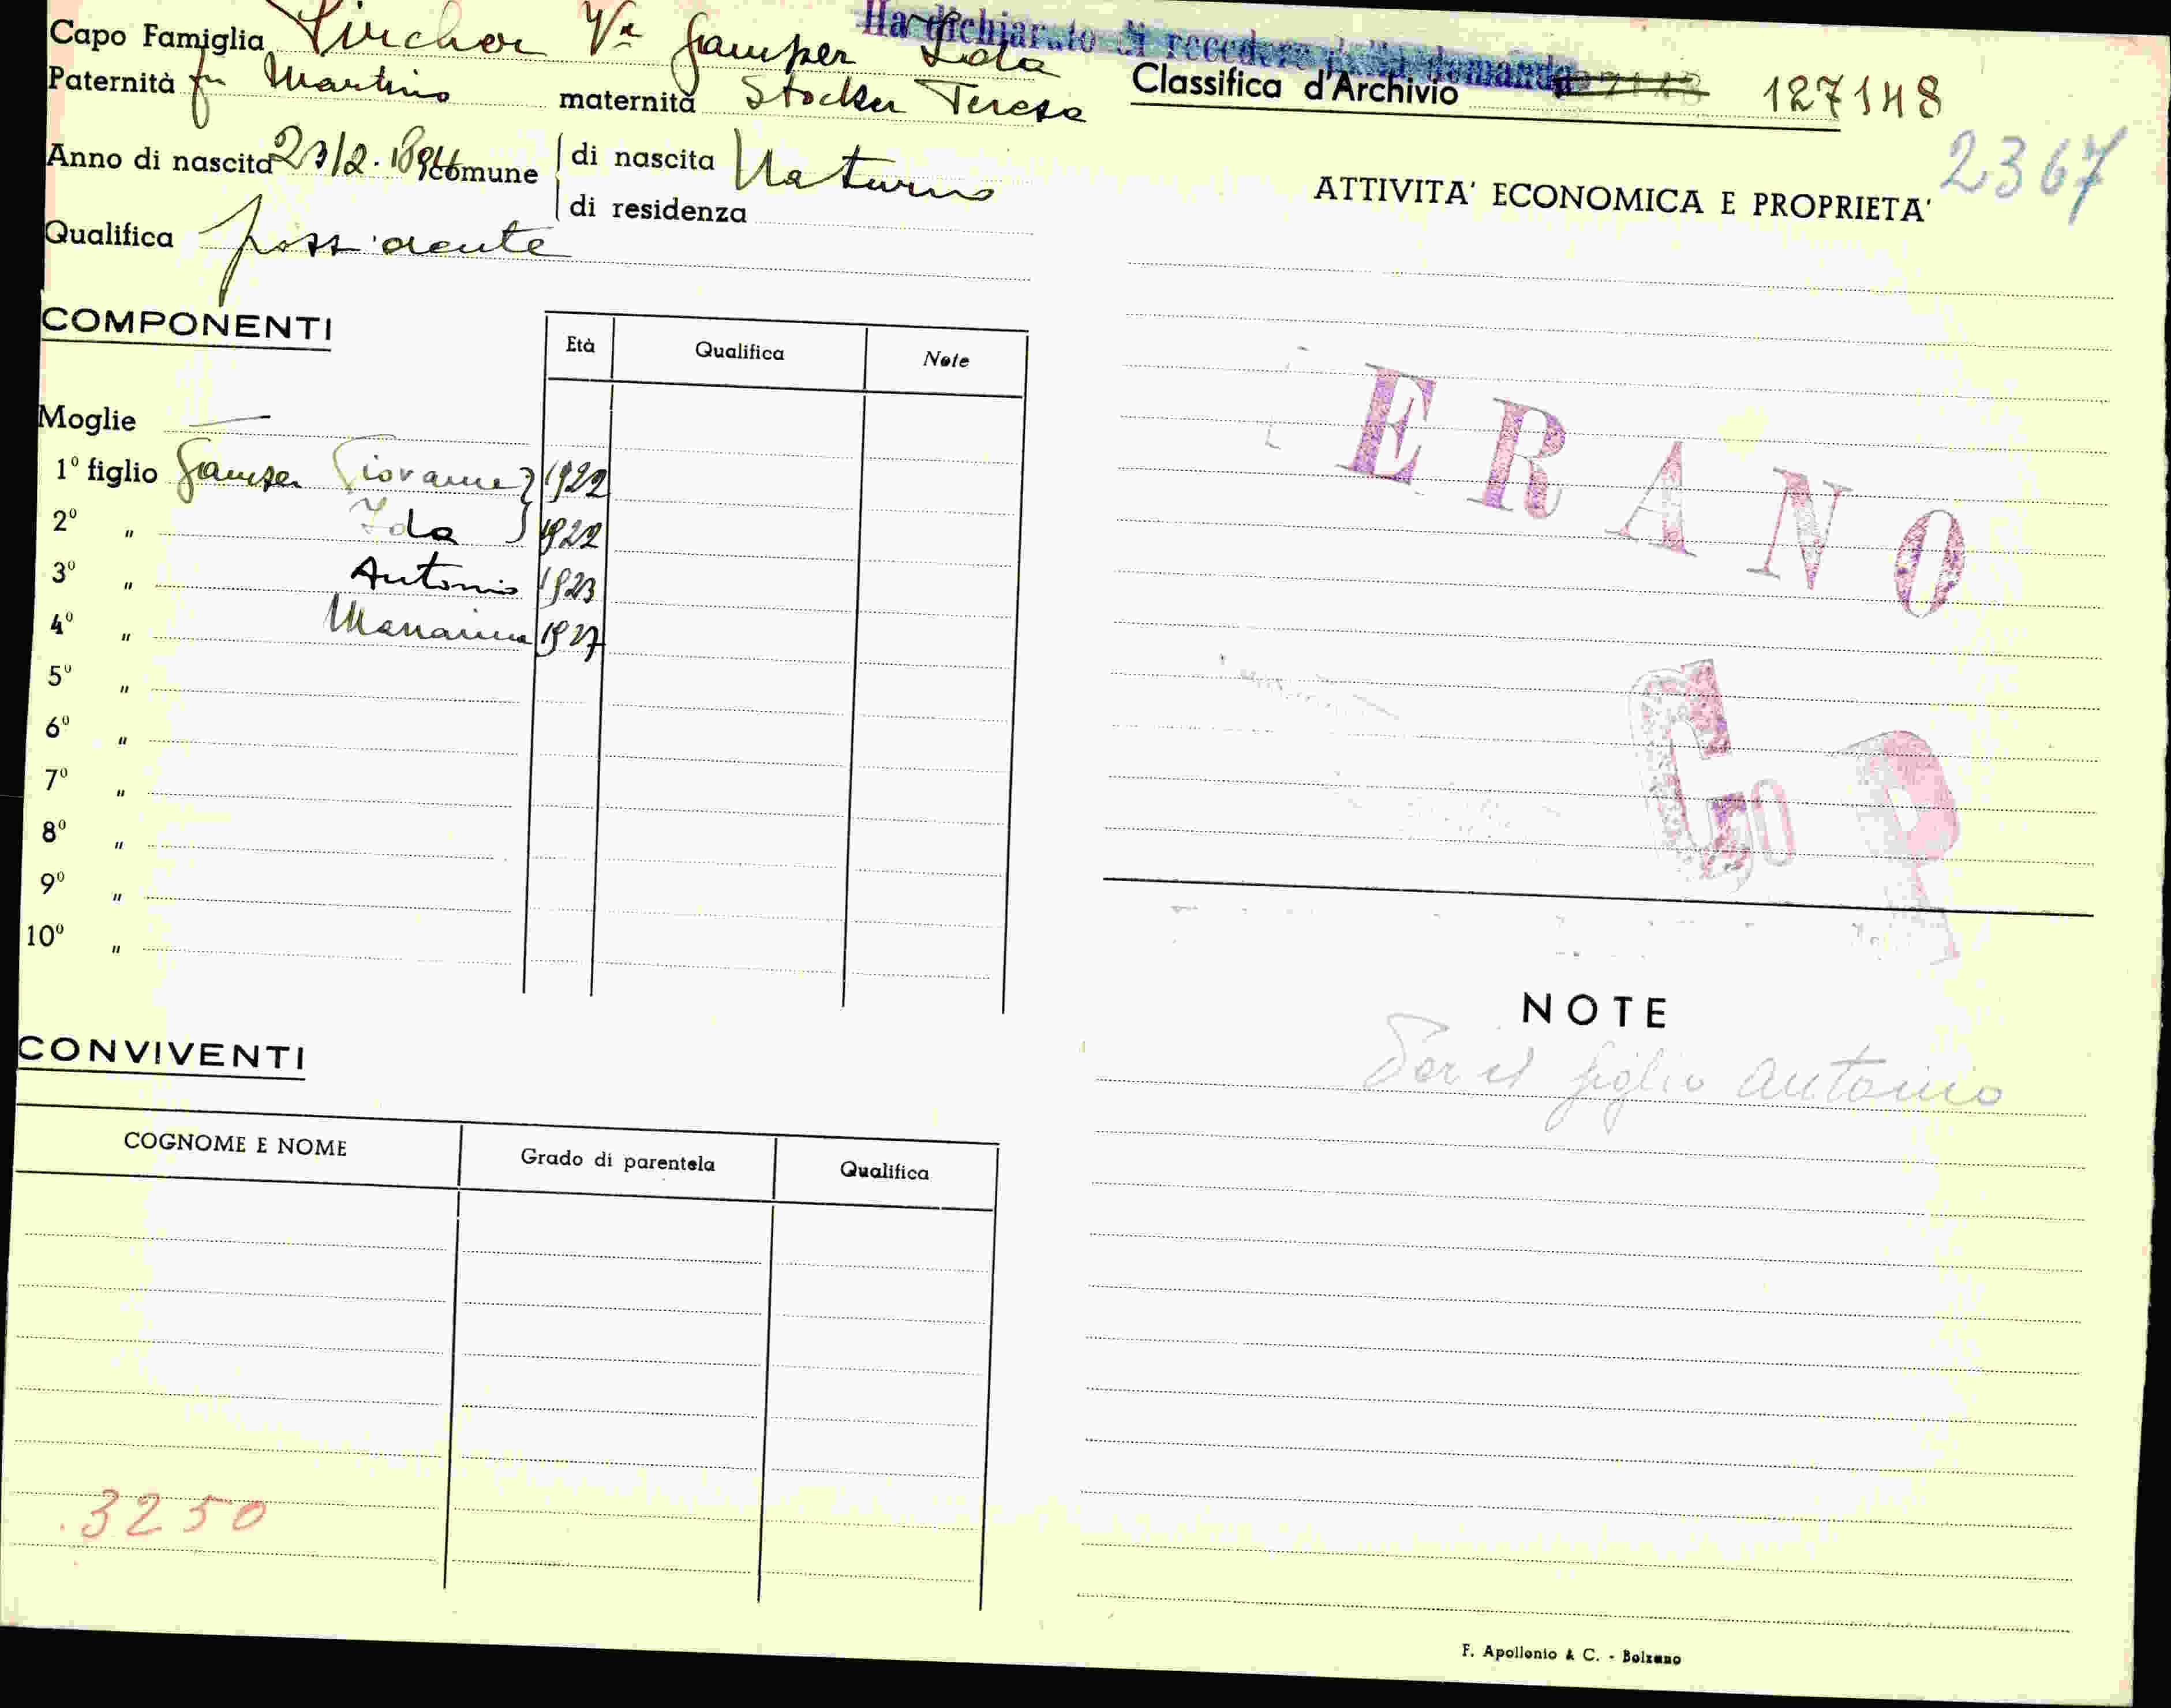 Ha dichiarato di recedere dalla domanda
Capo Famiglia Pircher Va Gamper Ida
Paternità fu Martino maternità Stocker Teresa
Anno di nascita 23/2.1894 Comune di nascita Naturno
di residenza
Qualifica possidente
COMPONENTI
Età Qualifica Note
Moglie —
1º figlio Gamper Giovanni 1922
2º " Ida 1922
3º " Antonio 1923
4º " Marianna 1927
5º "
6º "
7º "
8º "
9º "
10º "
CONVIVENTI
COGNOME E NOME Grado di parentela Qualifica
3250
Classifica d'Archivio 127148
2367
ATTIVITA' ECONOMICA E PROPRIETA'
ERANO
NOTE
Per il figlio Antonio
F. Apollonio & C. - Bolzano